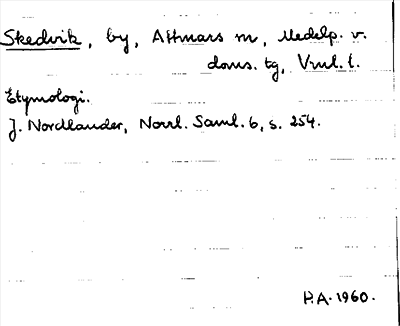 Skedvik, by, Attmars sn, Medelp. v.
doms. tg, Vnl. l.
Etymologi.
J. Nordlander, Norrl. Saml. 6, s. 254.
P.A. 1960.